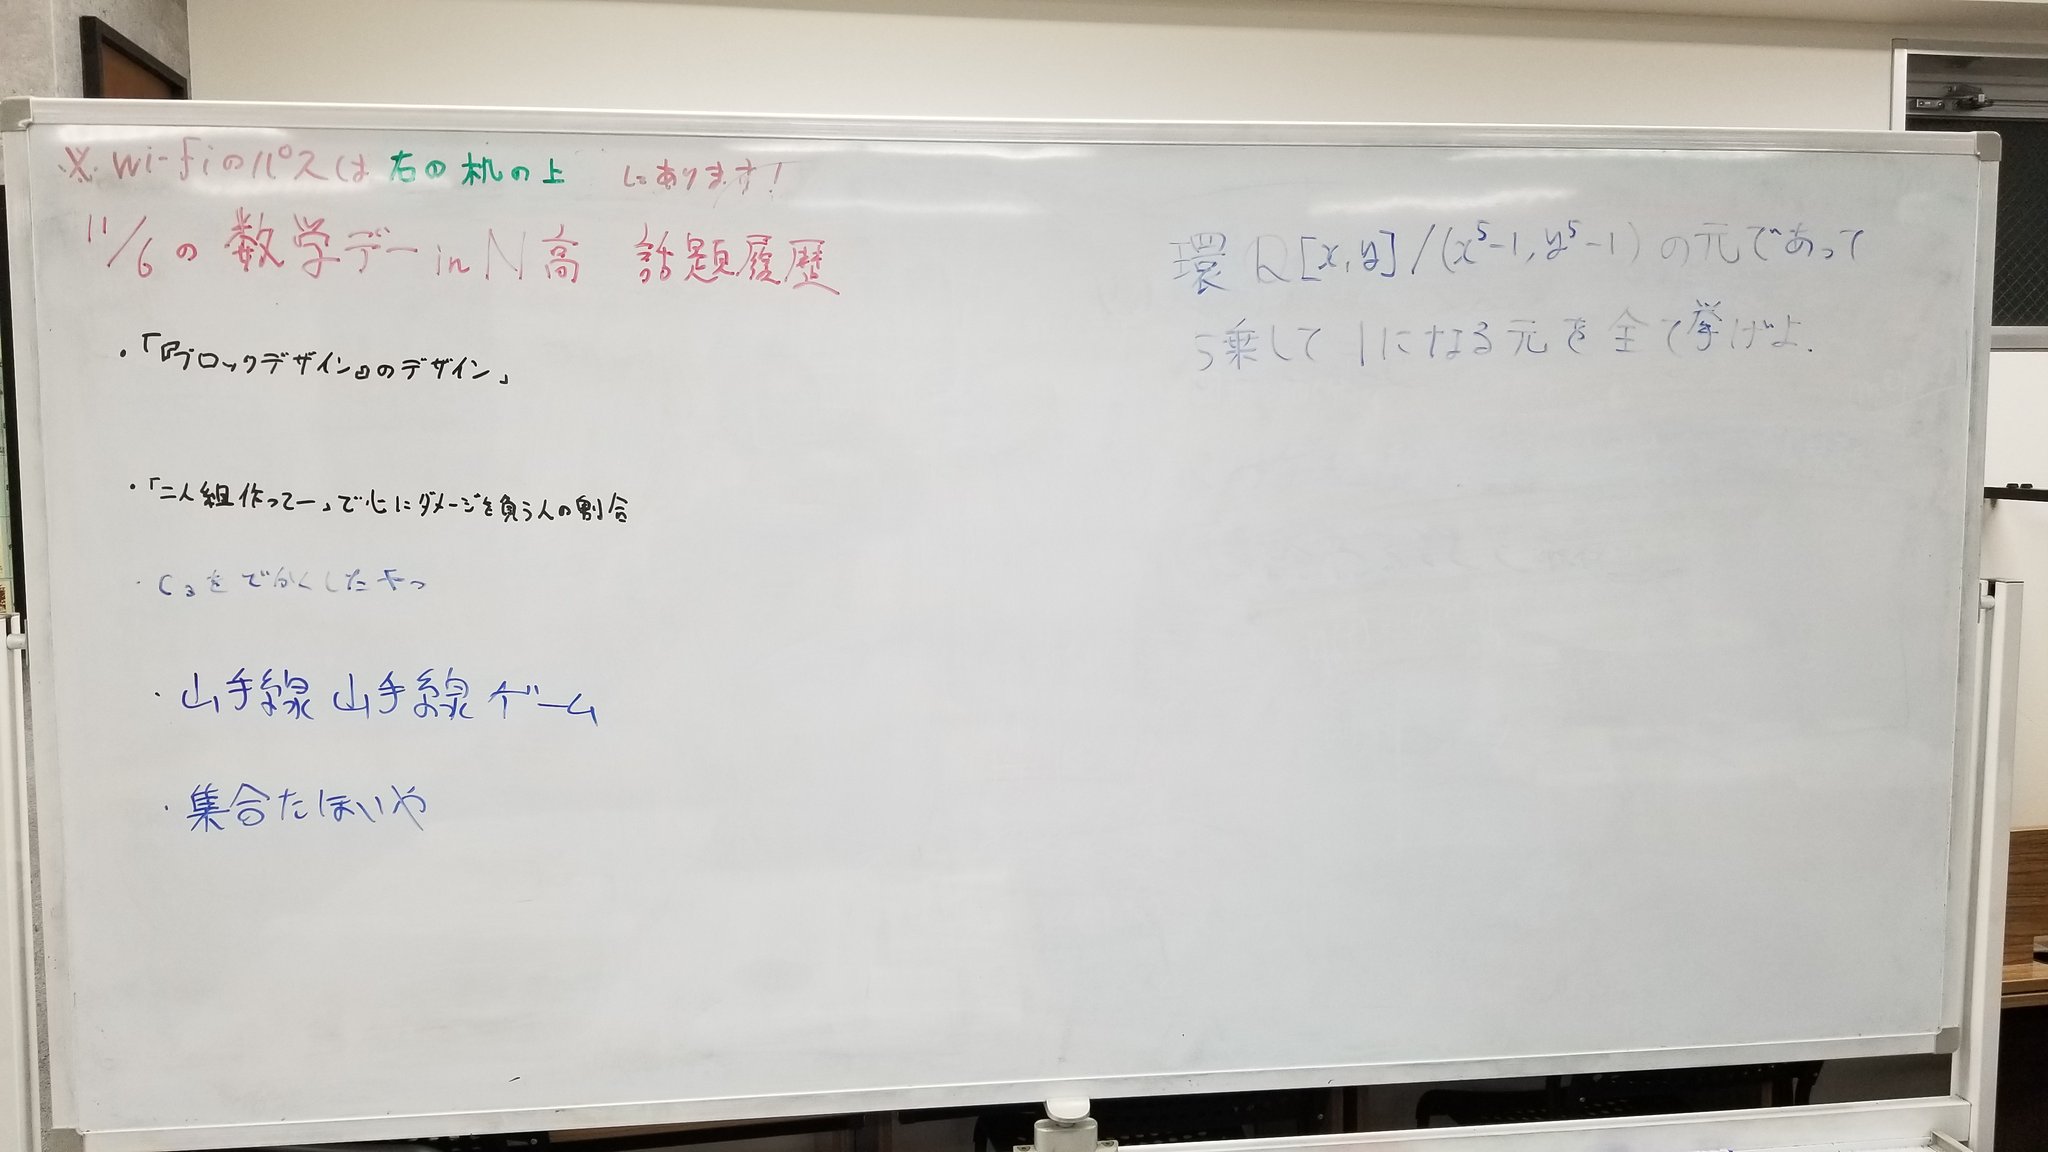 ※ Wi-fiのパスは 右の机の上 にあります!
11/6の数学デーin N高 話題履歴
・「『ブロックデザイン』のデザイン」
・「二人組作ってー」で心にダメージを負う人の割合
・C₃をでかくしたやつ
・山手線山手線ゲーム
・集合たほいや
環 Q[x,y]/(x⁵-1,y⁵-1)の元であって
5乗して1になる元を全て挙げよ.